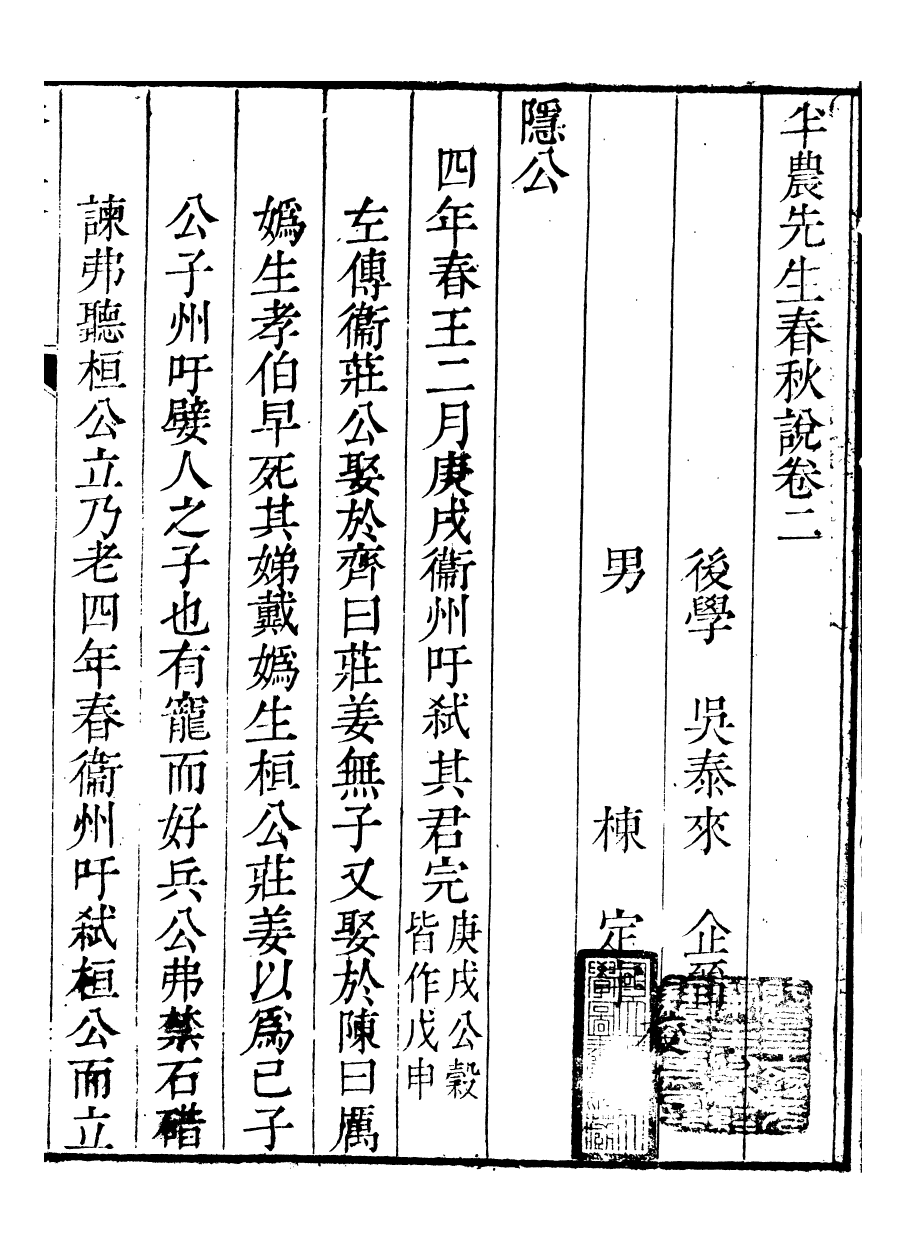 半農先生春秋說卷二
後學　吳泰來　企晉
男　棟　定宇　校
隱公
四年春王二月庚戌衞州吁弑其君完庚戌公穀皆作戊申
左傳衞莊公娶於齊曰莊姜無子又娶於陳曰厲
嬀生孝伯早死其娣戴嬀生桓公莊姜以爲己子
公子州吁嬖人之子也有寵而好兵公弗禁石碏
諫弗聽桓公立乃老四年春衞州吁弑桓公而立